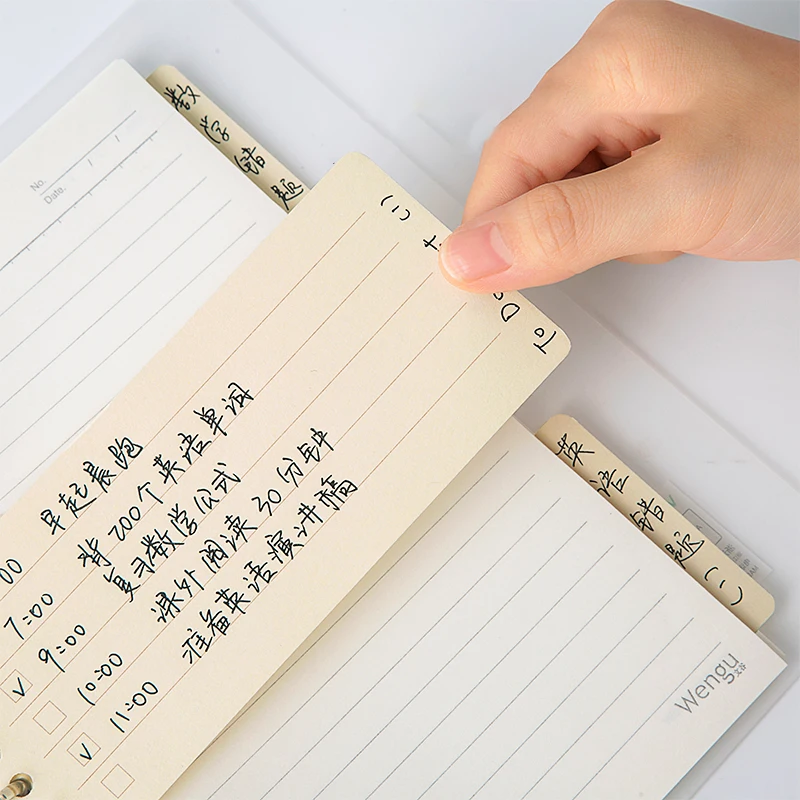 数学错题
No.
Date. / /
To Do
:00 早起晨跑
7:00 背200个英语单词
9:00 复习数学公式
10:00 课外阅读30分钟
11:00 准备英语演讲稿
英语错题
Wengu
文谷